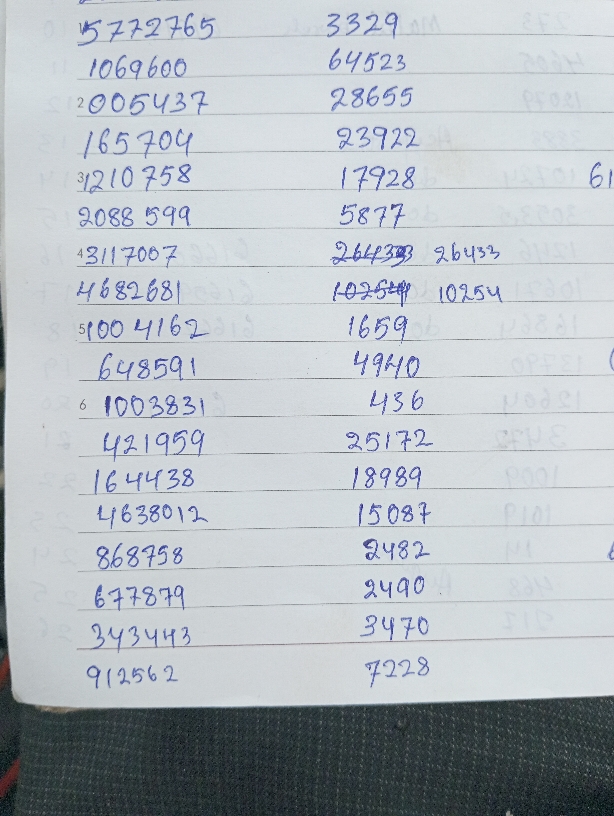 15772765 3329
1069600 64523
2 005437 28655
165704 23922
3 1210758 17928 61
2088599 5877
4 3117007 26433 26433
4682681 10254 10254
5 1004162 1659
648591 4940
6 1003831 436
421959 25172
164438 18989
4638012 15087
868758 2482
677879 2490
343443 3470
912562 7228